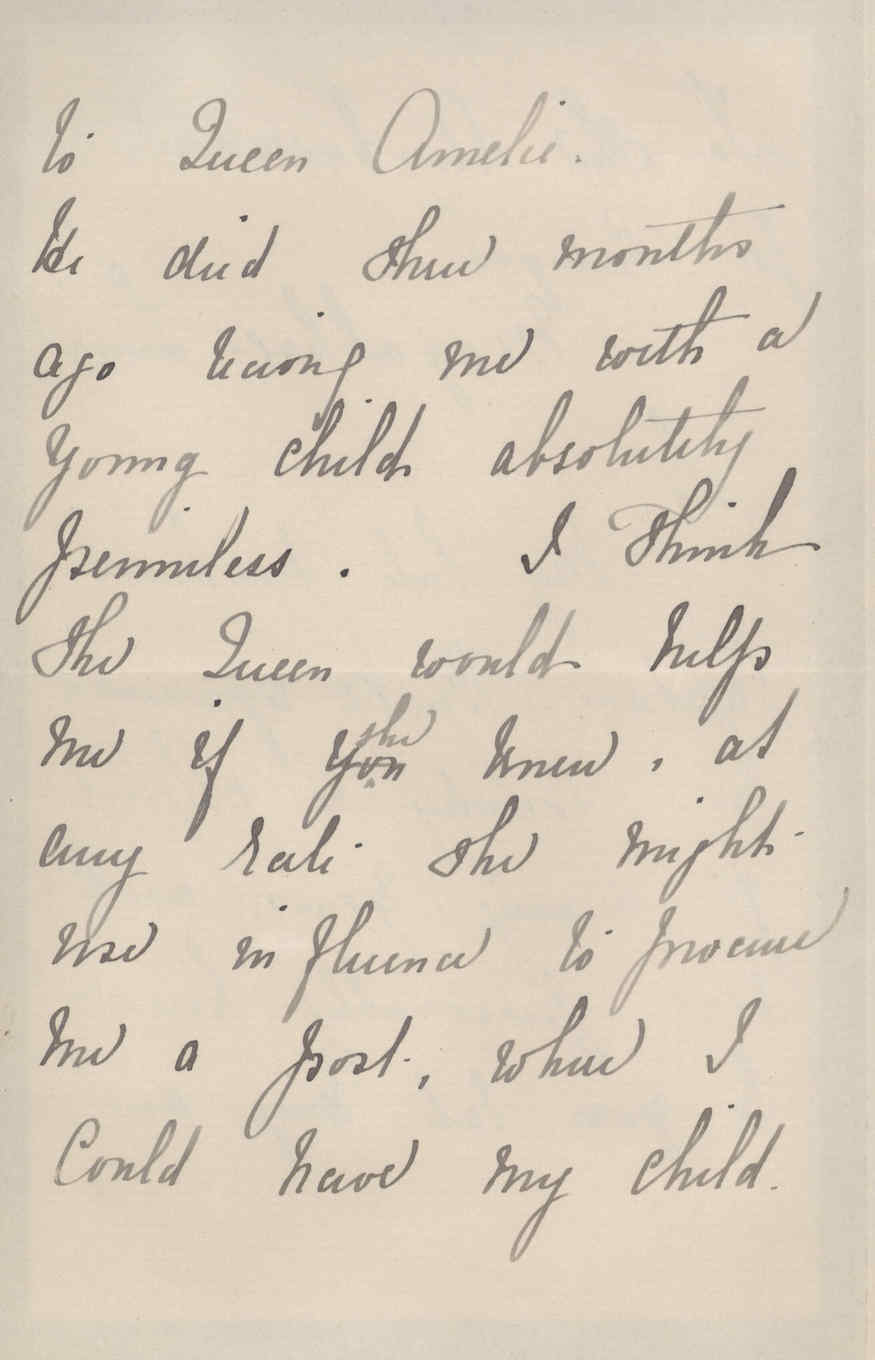 to Queen Amelie.
He died three months
ago leaving me with a
young child absolutely
penniless. I think
the Queen would help
me if you she knew, at
any rate she might
use influence to procure
me a post, where I
could have my child.